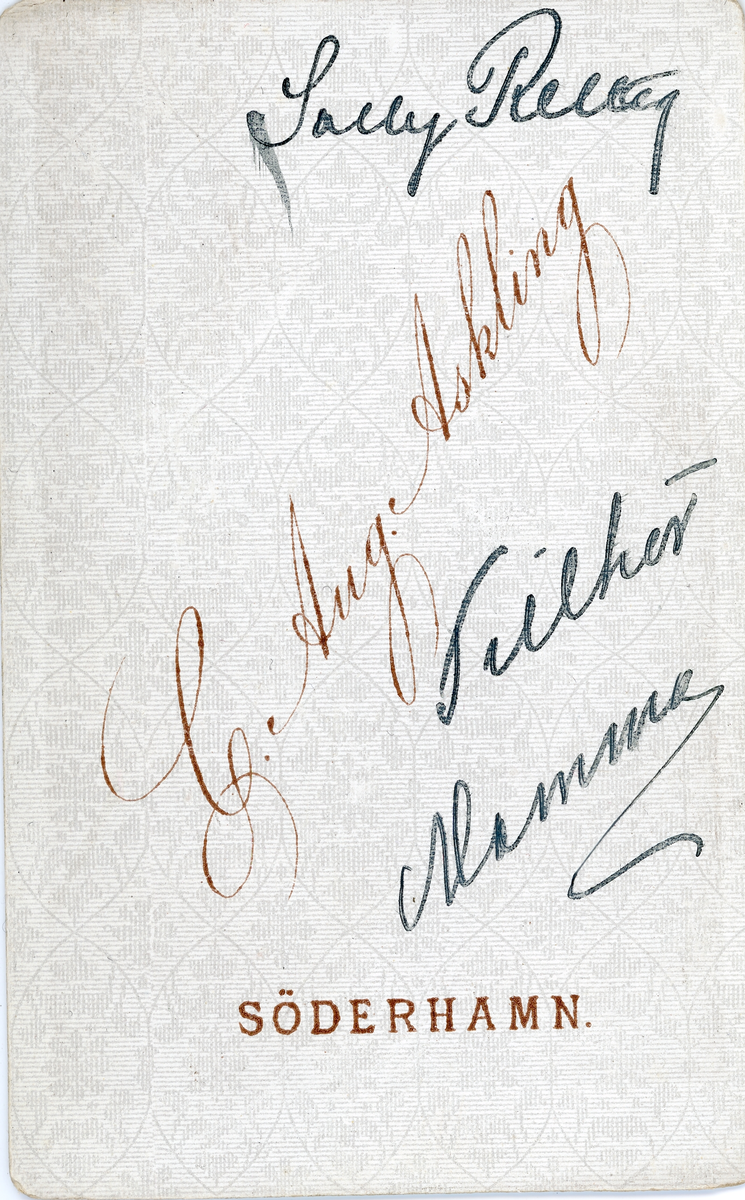 Sally
E. Aug. Askling
till her
Mamma
SÖDERHAMN.